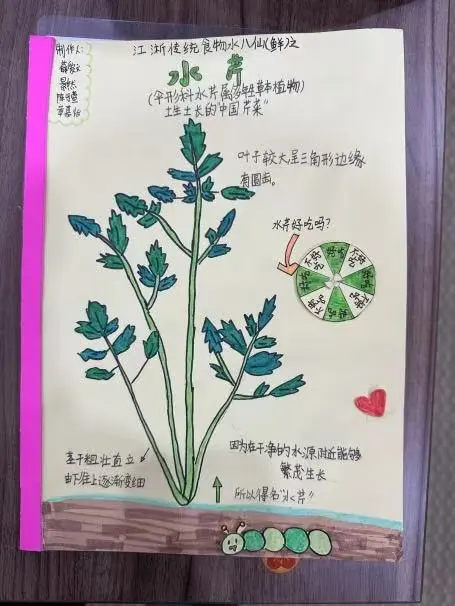 江浙传统食物水八仙(鲜)之
制作人:
水芹
(伞形科水芹属多年生草本植物)
土生土长的"中国芹菜"
叶子较大呈三角形边缘
有圆齿。
水芹好吃吗?
好吃
不好吃
好吃
不好吃
好吃
不好吃
好吃
不好吃
茎干粗壮直立
由下往上逐渐变细
因为在干净的水源附近能够
繁茂生长
所以得名"水芹"